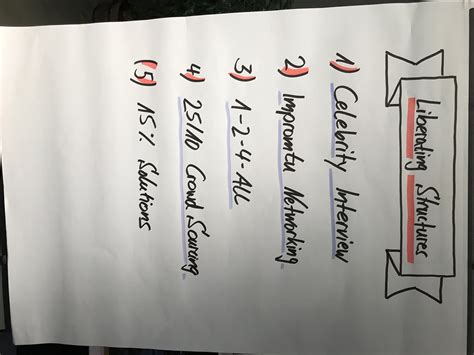 Liberating Structures
1) Celebrity Interview
2) Impromtu Networking
3) 1-2-4-ALL
4) 25/10 Crowd Sourcing
(5) 15% Solutions